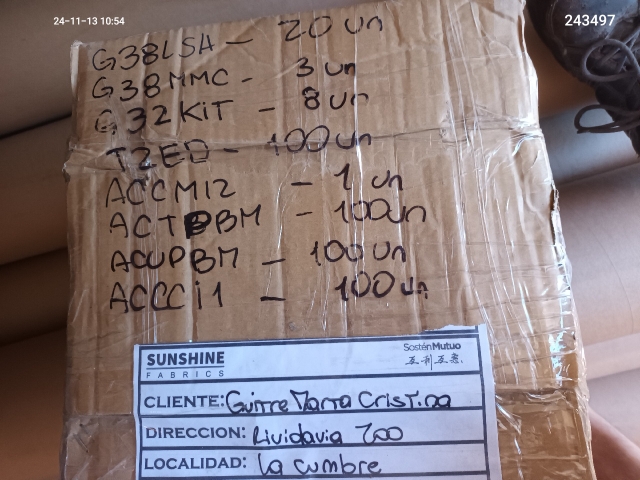 24-11-13 10:54
243497
G38LSH - 20 un
G38MMC - 3 un
G32KiT - 8 un
TZED - 100 un
ACCM12 - 1 un
ACTBBM - 100un
ACUPBM - 100 un
ACCCi1 - 100un
SUNSHINE
FABRICS
SosténMutuo
CLIENTE: Guirre Marra Cristina
DIRECCION: Rividavia 700
LOCALIDAD: La cumbre